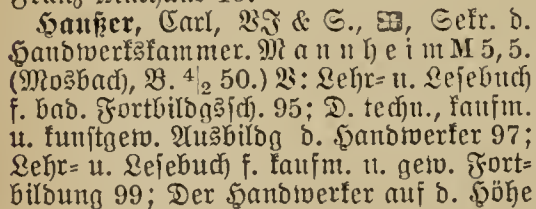 Haußer, Carl, VJ & S., Sekr. d.
Handwerkskammer. Mannheim M 5, 5.
(Mosbach, B. 4|2 50.) V: Lehr= u. Lesebuch
f. bad. Fortbildgssch. 95; D. techn., kaufm.
u. kunstgew. Ausbildg d. Handwerker 97;
Lehr= u. Lesebuch f. kaufm. u. gew. Fort=
bildung 99; Der Handwerker auf d. Höhe